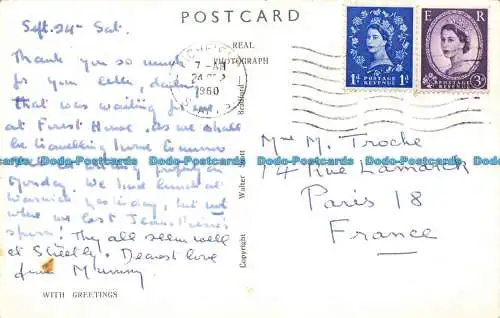 POSTCARD
Sept. 24 Sat.
Thank you so much
for your letter, darling
that was waiting for me
at Forest House. As we shall
be travelling home
Monday. We had lunch at
Warwick yesterday, but not
where we lost Jean-Pierre's
spurs! They all seem well
at Streetly. Dearest love
from Mummy
WITH GREETINGS
REAL
PHOTOGRAPH
Copyright Walter Scott Bradford
7-
24
1960
POSTAGE
REVENUE
1d 1d
E R
POSTAGE
REVENUE
3d
Mme M. Troche
14 Rue Lamarck
Paris 18
France
Dodo-Postcards Dodo-Postcards Dodo-Postcards Dodo-Postcards